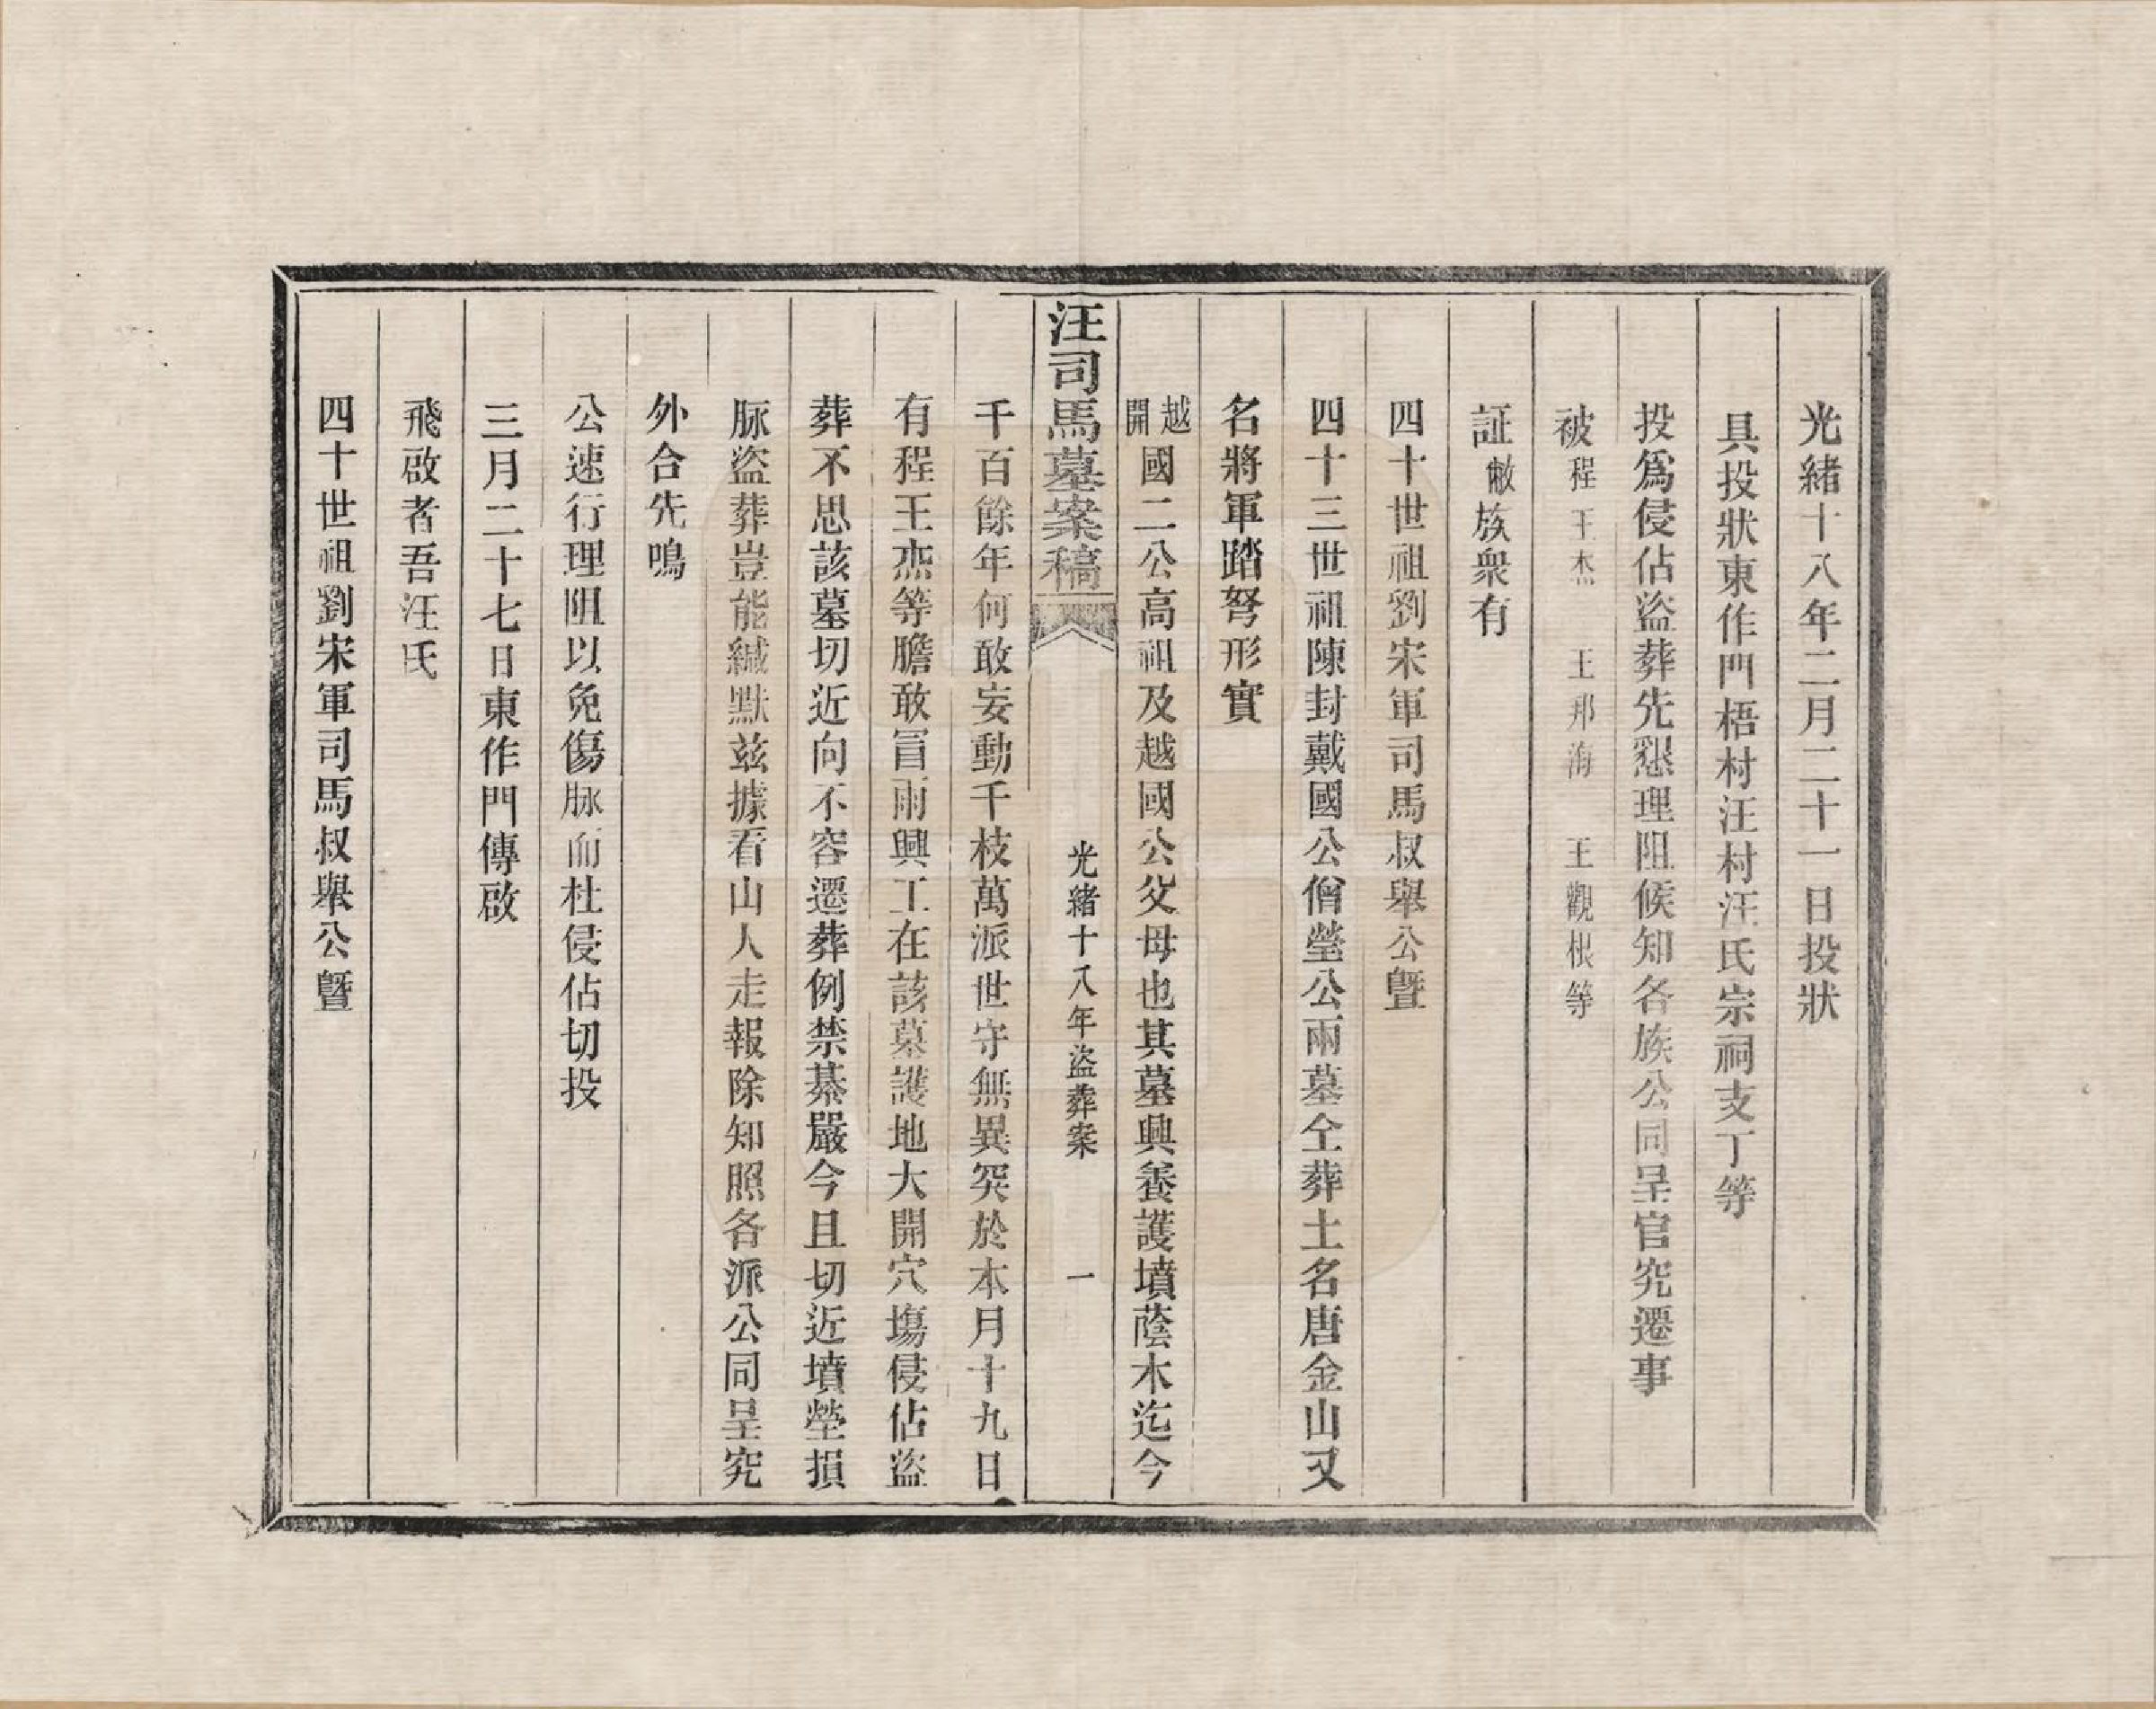 光緒十八年二月二十一日投狀
具投狀東作門梧村汪村汪氏宗祠支丁等
投爲侵佔盜葬先懇理阻候知各族公同呈官究遷事
被程王杰 王邦海 王觀根等
証敝族衆有
四十世祖劉宋軍司馬叔舉公曁
四十三世祖陳封戴國公僧瑩公兩墓仝葬土名唐金山又
名將軍踏弩形實
越開國二公高祖及越國公父母也其墓興養護墳蔭木迄今
汪司馬墓案稿 光緒十八年盜葬案 一
千百餘年何敢妄動千枝萬派世守無異突於本月十九日
有程王杰等膽敢冒雨興工在該墓護地大開穴塲侵佔盜
葬不思該墓切近向不容遷葬例禁綦嚴今且切近墳塋損
脉盜葬豈能緘默兹據看山人走報除知照各派公同呈究
外合先鳴
公速行理阻以免傷脉而杜侵佔切投
三月二十七日東作門傳啟
飛啟者吾汪氏
四十世祖劉宋軍司馬叔舉公曁